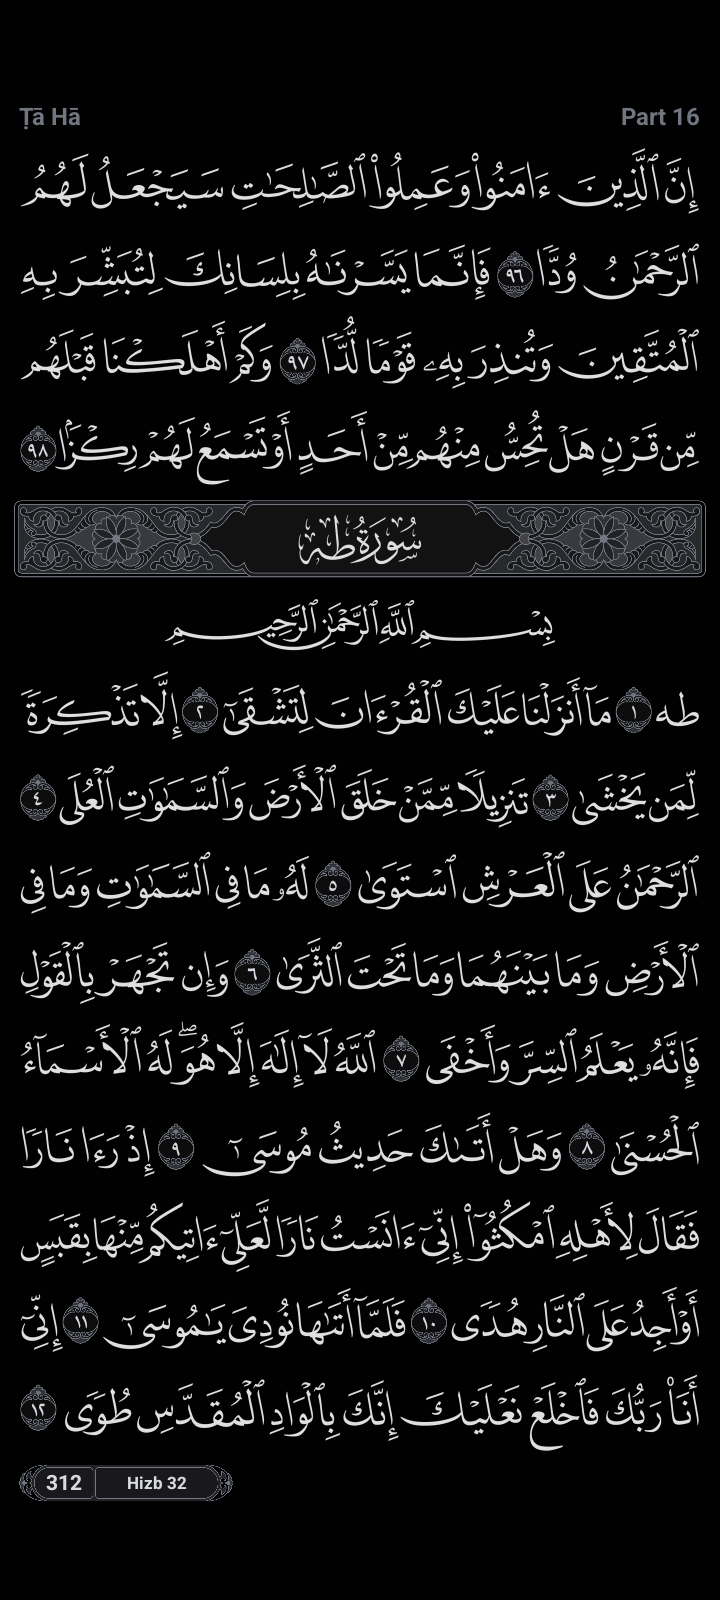 Ṭā Hā
Part 16
إِنَّ ٱلَّذِينَ ءَامَنُوا۟ وَعَمِلُوا۟ ٱلصَّـٰلِحَـٰتِ سَيَجْعَلُ لَهُمُ
ٱلرَّحْمَـٰنُ وُدًّا ٩٦ فَإِنَّمَا يَسَّرْنَـٰهُ بِلِسَانِكَ لِتُبَشِّرَ بِهِ
ٱلْمُتَّقِينَ وَتُنذِرَ بِهِۦ قَوْمًا لُّدًّا ٩٧ وَكَمْ أَهْلَكْنَا قَبْلَهُم
مِّن قَرْنٍ هَلْ تُحِسُّ مِنْهُم مِّنْ أَحَدٍ أَوْ تَسْمَعُ لَهُمْ رِكْزًۢا ٩٨
سُورَةُ طه
بِسْمِ ٱللَّهِ ٱلرَّحْمَـٰنِ ٱلرَّحِيمِ
طه ١ مَآ أَنزَلْنَا عَلَيْكَ ٱلْقُرْءَانَ لِتَشْقَىٰٓ ٢ إِلَّا تَذْكِرَةً
لِّمَن يَخْشَىٰ ٣ تَنزِيلًا مِّمَّنْ خَلَقَ ٱلْأَرْضَ وَٱلسَّمَـٰوَٰتِ ٱلْعُلَى ٤
ٱلرَّحْمَـٰنُ عَلَى ٱلْعَرْشِ ٱسْتَوَىٰ ٥ لَهُۥ مَا فِى ٱلسَّمَـٰوَٰتِ وَمَا فِى
ٱلْأَرْضِ وَمَا بَيْنَهُمَا وَمَا تَحْتَ ٱلثَّرَىٰ ٦ وَإِن تَجْهَرْ بِٱلْقَوْلِ
فَإِنَّهُۥ يَعْلَمُ ٱلسِّرَّ وَأَخْفَى ٧ ٱللَّهُ لَآ إِلَـٰهَ إِلَّا هُوَ ۖ لَهُ ٱلْأَسْمَآءُ
ٱلْحُسْنَىٰ ٨ وَهَلْ أَتَىٰكَ حَدِيثُ مُوسَىٰٓ ٩ إِذْ رَءَا نَارًا
فَقَالَ لِأَهْلِهِ ٱمْكُثُوٓا۟ إِنِّىٓ ءَانَسْتُ نَارًا لَّعَلِّىٓ ءَاتِيكُم مِّنْهَا بِقَبَسٍ
أَوْ أَجِدُ عَلَى ٱلنَّارِ هُدًى ١٠ فَلَمَّآ أَتَىٰهَا نُودِىَ يَـٰمُوسَىٰٓ ١١ إِنِّىٓ
أَنَا۠ رَبُّكَ فَٱخْلَعْ نَعْلَيْكَ إِنَّكَ بِٱلْوَادِ ٱلْمُقَدَّسِ طُوًى ١٢
312
Hizb 32